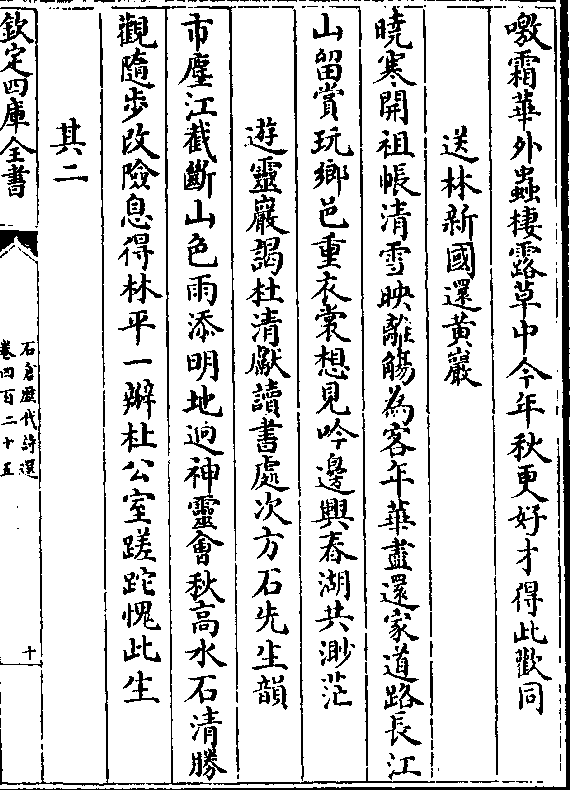 噭霜華外蟲棲露草中今年秋更好才得此歡同
送林新國還黄巖
曉寒開祖帳清雪映離觴為客年華盡還家道路長江
山留賞玩鄉邑重衣裳想見吟邊興春湖共渺茫
遊靈巖謁杜清獻讀書處次方石先生韻
市塵江截斷山色雨添明地迥神靈會秋高水石清勝
觀隨步改險息得林平一辦杜公室蹉跎愧此生
其二
欽定四庫全書
石倉歷代詩選
卷四百二十五
十